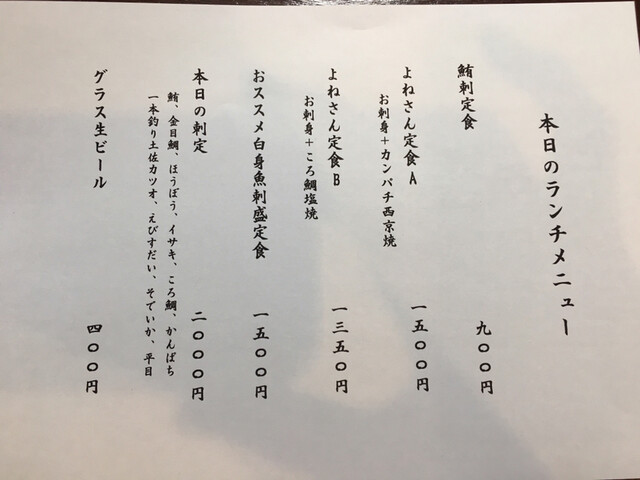 本日のランチメニュー
鮪刺定食 九〇〇円
よねさん定食A 一五〇〇円
お刺身+カンパチ西京焼
よねさん定食B 一三五〇円
お刺身+ころ鯛塩焼
おススメ白身魚刺盛定食 一五〇〇円
本日の刺定 二〇〇〇円
鮪、金目鯛、ほうぼう、イサキ、ころ鯛、かんぱち
一本釣り土佐カツオ、えびすだい、そでいか、平目
グラス生ビール 四〇〇円